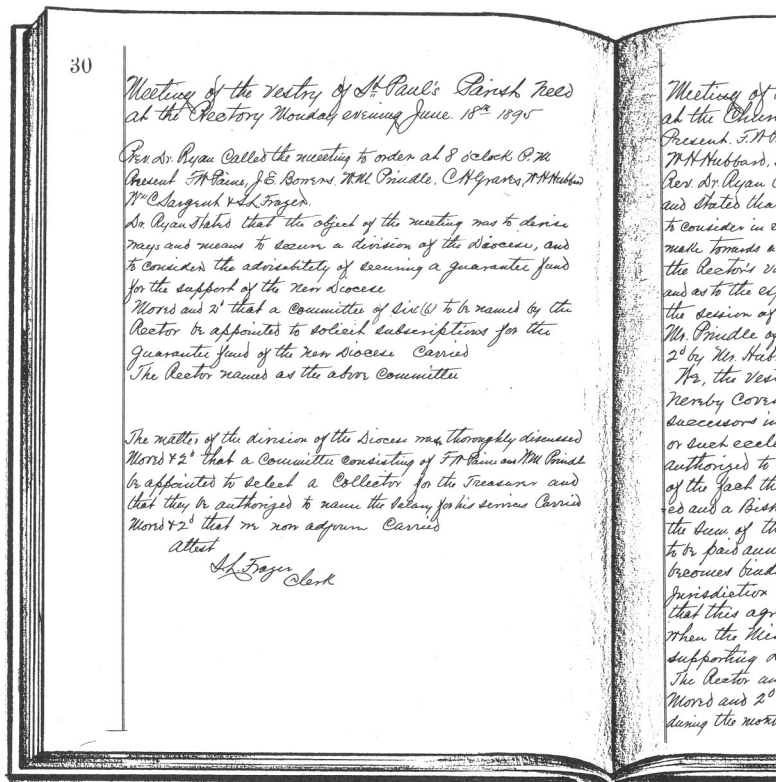 30
Meeting of the Vestry of St. Paul's Parish held
at the Rectory Monday evening June. 18th 1895
Rev. Dr. Ryan Called the meeting to order at 8 oclock P.M
Present F W Paine, J. E. Bowers, W M. Prindle, C H Graves, W H Hubbard
Wm C Sargent & S L Frazer.
Dr. Ryan Stated that the object of the meeting was to devise
ways and means to secure a division of the Diocese, and
to consider the advisability of securing a guarantee fund
for the support of the New Diocese
Moved and 2d that a Committee of Six (6) to be named by the
Rector be appointed to solicit subscriptions for the
guarantee fund of the New Diocese Carried
The Rector named as the above Committee
The matter of the division of the Diocese was thoroughly discussed
Moved & 2d that a Committee consisting of F W Paine and W M Prindle
be appointed to select a Collector for the Treasurer and
that they be authorized to name the Salary for his services Carried
Moved & 2d that we now adjourn Carried
Attest
S L. Frazer
Clerk
Meeting of
at the
Present. F. W.
W H Hubbard,
Rev. Dr. Ryan
and stated that
to consider in
make towards
the Rector's
and as to the
the session of
Mr. Prindle
2d by Mr.
We, the
hereby
successors in
or such
authorized to
of the fact
ed and a
the sum of
to be paid
becomes
Jurisdiction
that this
when the
supporting
The Rector
Moved and 2d
during the